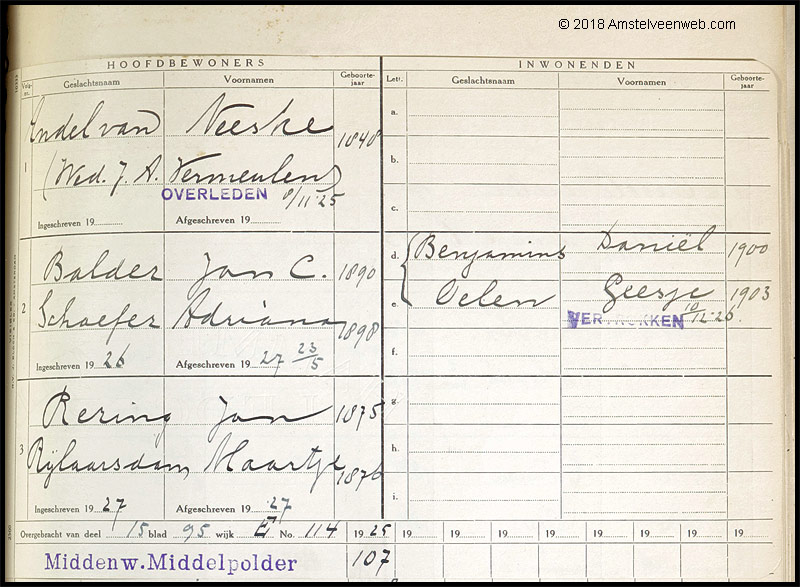 © 2018 Amstelveenweb.com
HOOFDBEWONERS
INWONENDEN
Volg-nr. Geslachtsnaam Voornamen Geboorte-jaar
Lett. Geslachtsnaam Voornamen Geboorte-jaar
1 Endel van Neeske 1848
(Wed. J. A. Vermeulen)
OVERLEDEN 8/11 '25
Ingeschreven 19 Afgeschreven 19
a.
b.
c.
2 Balder Jan C. 1890
Schaefer Adriana 1898
Ingeschreven 1926 Afgeschreven 1927 23/5
d. Benjamins Daniël 1900
e. Oelen Geesje 1903
VERTROKKEN 10/12 '26.
f.
3 Rering Jan 1875
Rijlaarsdam Maartje 1876
Ingeschreven 1927 Afgeschreven 1927
g.
h.
i.
Overgebracht van deel 15 blad 95 wijk E No. 114 1925 19 19 19 19 19 19 19 19
Middenw. Middelpolder 107